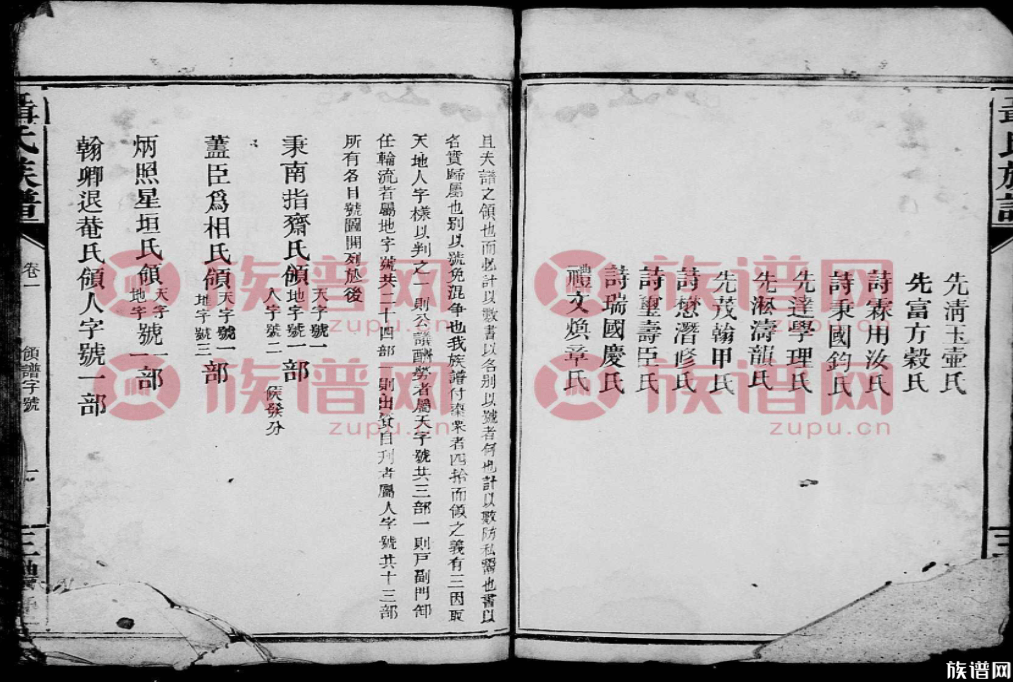 先淸玉壷氏
先富方榖氏
詩霖用汝氏
詩秉國鈞氏
先達學理氏
先瀜濤龍氏
先茂翰甲氏
詩懋潛修氏
詩璽壽臣氏
詩瑞國慶氏
禮文煥章氏
且夫譜之領也而必計以數書以名别以號者何也計以數防私鬻也書以
名實歸屬也别以號免混争也我族譜付梁棗者四拾而領之義有三因取
天地人字樣以判之一則公議酬勞者屬天字號共三部一則戸副門卸
任輪流者屬地字號共二十四部一則出貲自刋者屬人字號共十三部
所有各目號圖開列於後
秉南指齋氏領天字號一地字號一人字號二部 候發分
藎臣爲相氏領天字號二地字號三部
炳照星垣氏領天字地字號一部
翰卿退菴氏領人字號一部
聶氏族譜
卷一
領譜字號
三禮
族谱网
zupu.cn
族谱网
zupu.cn
族谱网
zupu.cn
族谱网
zupu.cn
族谱网